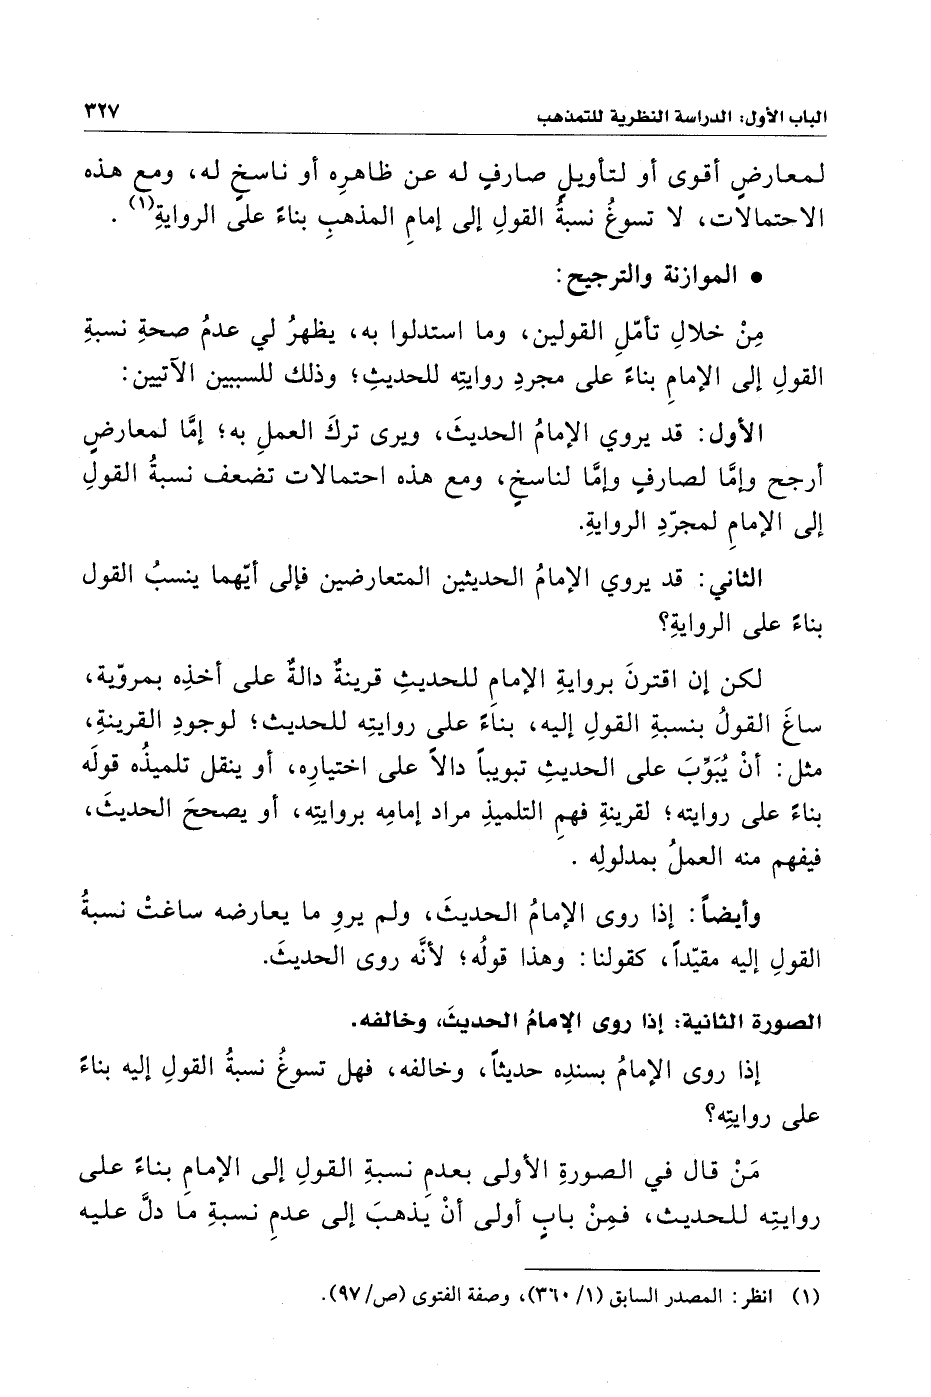 الباب الأول: الدراسة النظرية للتمذهب ٣٢٧
لمعارضٍ أقوى أو لتأويلٍ صارفٍ له عن ظاهرِه أو ناسخٍ له، ومع هذه
الاحتمالات، لا تسوغُ نسبةُ القولِ إلى إمامِ المذهبِ بناءً على الروايةِ(١) .
• الموازنة والترجيح:
مِنْ خلالِ تأمّلِ القولين، وما استدلوا به، يظهرُ لي عدمُ صحةِ نسبةِ
القولِ إلى الإمامِ بناءً على مجردِ روايتِه للحديثِ؛ وذلك للسببين الآتيين:
الأول: قد يروي الإمامُ الحديثَ، ويرى تركَ العملِ به؛ إمَّا لمعارضٍ
أرجح وإمَّا لصارفٍ وإمَّا لناسخٍ، ومع هذه احتمالات تضعف نسبةُ القولِ
إلى الإمامِ لمجرّدِ الروايةِ.
الثاني: قد يروي الإمامُ الحديثين المتعارضين فإلى أيّهما ينسبُ القول
بناءً على الروايةِ؟
لكن إن اقترنَ بروايةِ الإمامِ للحديثِ قرينةٌ دالةٌ على أخذِه بمرويّة،
ساغَ القولُ بنسبةِ القولِ إليه، بناءً على روايتِه للحديث؛ لوجودِ القرينةِ،
مثل: أنْ يُبَوِّبَ على الحديثِ تبويباً دالاً على اختيارِه، أو ينقل تلميذُه قولَه
بناءً على روايته؛ لقرينةِ فهمِ التلميذِ مراد إمامِه بروايتِه، أو يصححَ الحديثَ،
فيفهم منه العملُ بمدلولِه .
وأيضاً: إذا روى الإمامُ الحديثَ، ولم يروِ ما يعارضه ساغتْ نسبةُ
القولِ إليه مقيّداً، كقولنا: وهذا قولُه؛ لأنَّه روى الحديثَ.
الصورة الثانية: إذا روى الإمامُ الحديثَ، وخالفه.
إذا روى الإمامُ بسندِه حديثاً، وخالفه، فهل تسوغُ نسبةُ القولِ إليه بناءً
على روايتِه؟
مَنْ قال في الصورةِ الأولى بعدمِ نسبةِ القولِ إلى الإمامِ بناءً على
روايتِه للحديث، فمِنْ بابٍ أولى أنْ يذهبَ إلى عدمِ نسبةِ ما دلَّ عليه
(١) انظر: المصدر السابق (١/ ٣٦٠)، وصفة الفتوى (ص/ ٩٧).